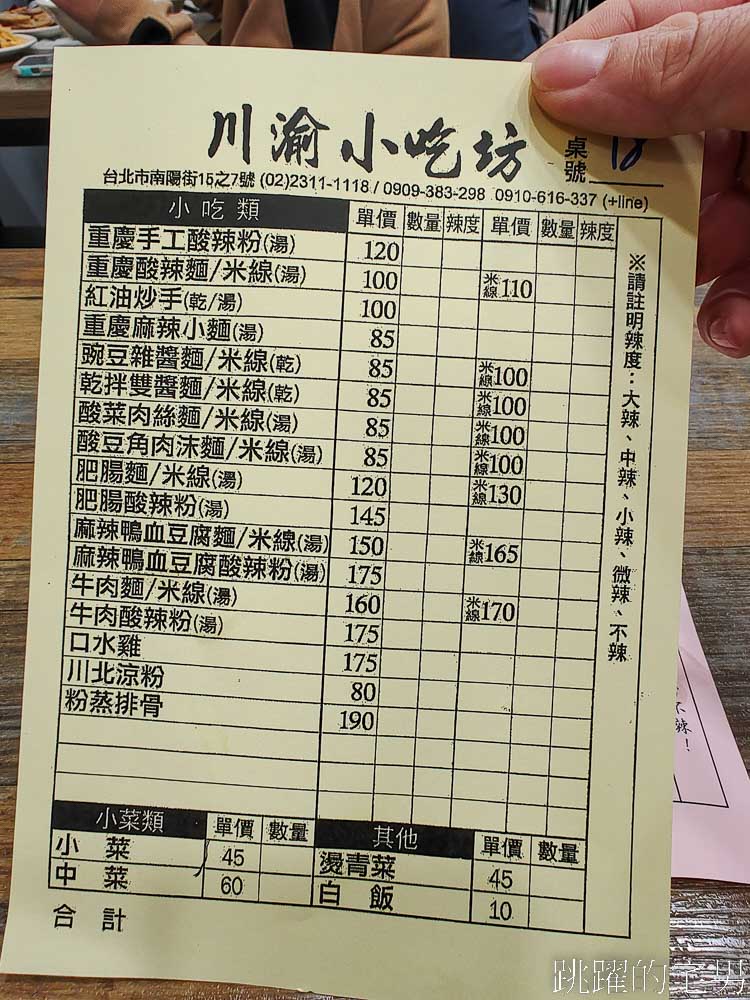 川渝小吃坊
桌號 18
台北市南陽街15之7號 (02)2311-1118 / 0909-383-298 0910-616-337 (+line)
小吃類 單價 數量 辣度 單價 數量 辣度
重慶手工酸辣粉(湯) 120
重慶酸辣麵/米線(湯) 100 米線110
紅油炒手(乾/湯) 100
重慶麻辣小麵(湯) 85
豌豆雜醬麵/米線(乾) 85 米線100
乾拌雙醬麵/米線(乾) 85 米線100
酸菜肉絲麵/米線(湯) 85 米線100
酸豆角肉沫麵/米線(湯) 85 米線100
肥腸麵/米線(湯) 120 米線130
肥腸酸辣粉(湯) 145
麻辣鴨血豆腐麵/米線(湯) 150 米線165
麻辣鴨血豆腐酸辣粉(湯) 175
牛肉麵/米線(湯) 160 米線170
牛肉酸辣粉(湯) 175
口水雞 175
川北涼粉 80
粉蒸排骨 190
※請註明辣度：大辣、中辣、小辣、微辣、不辣
小菜類 單價 數量 其他 單價 數量
小菜 45 燙青菜 45
中菜 60 白飯 10
合計
辣！
跳躍的宅男